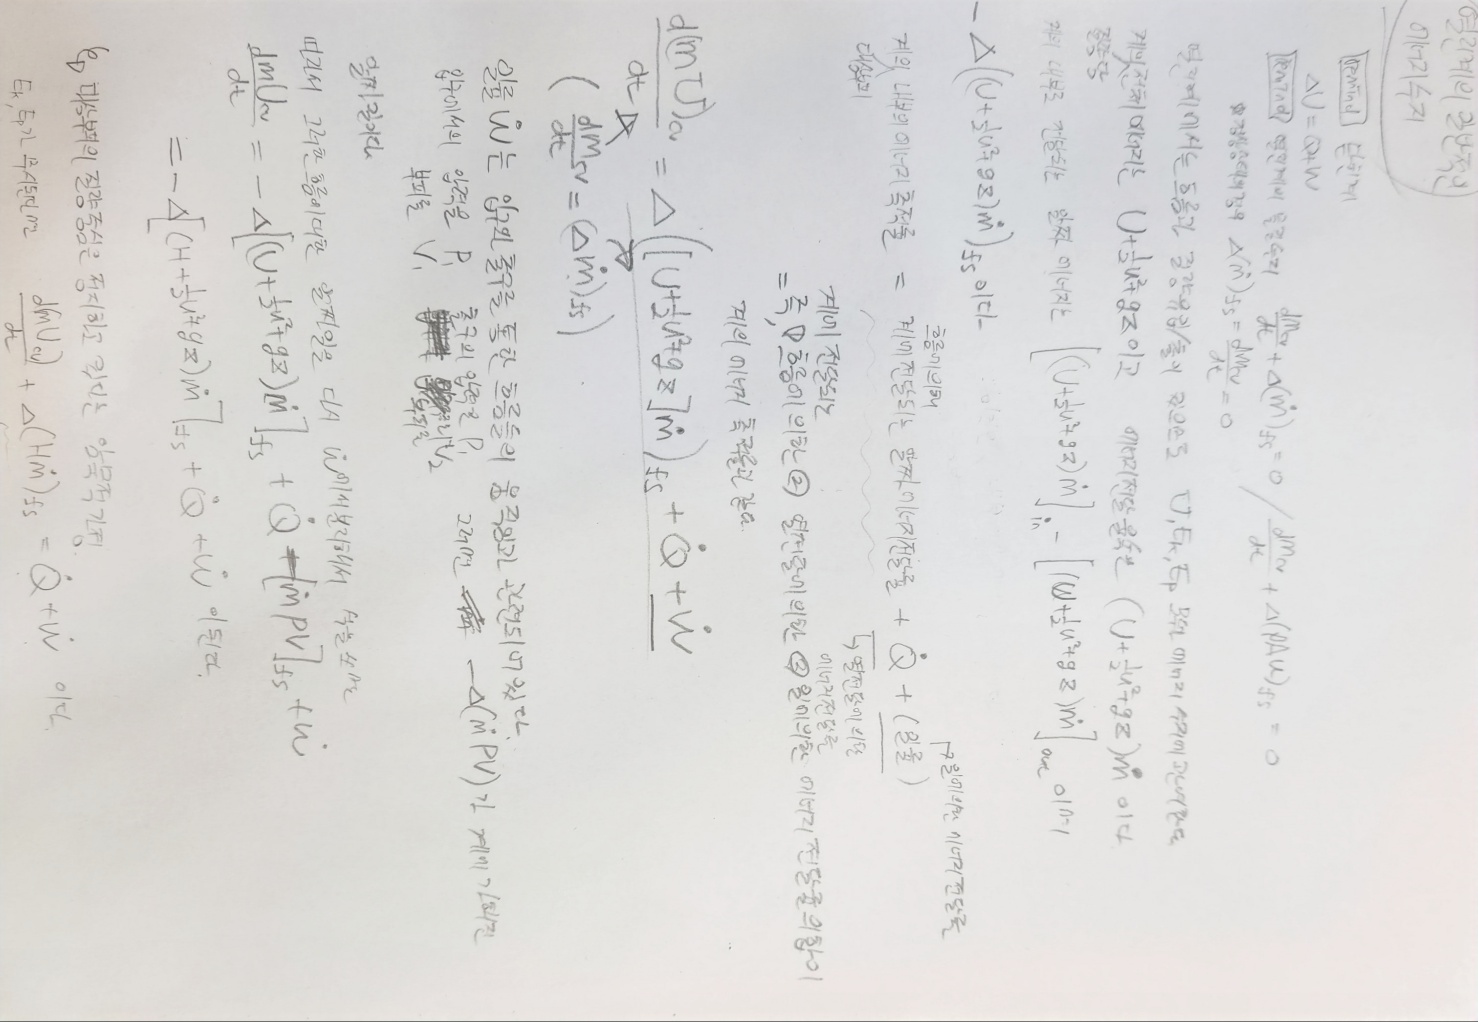 열린계의 일반적인
에너지수지
Remind 닫힌계
ΔU = Q+W
Remind 열린계의 물질수지 dm_cv/dt + Δ(ṁ)_fs = 0 / dm_cv/dt + Δ(ρAu)_fs = 0
※정상상태의 경우 Δ(ṁ)_fs = dm_cv/dt = 0
열린계에서는 흐름과 질량유입/출이 있으므로 U, Ek, Ep 모두 에너지 수지에 관여한다
계의 전체 에너지는 U+½u²+gz 이고 에너지전달율은 (U+½u²+gz)ṁ 이다
질량당
계의 내부로 전달되는 알짜 에너지는 [(U+½u²+gz)ṁ]_in - [(U+½u²+gz)ṁ]_out 이며
- Δ((U+½u²+gz)ṁ)_fs 이다
↱일에의한 에너지전달률
흐름에의해
계의 내부의 에너지 축적률 = 계에 전달되는 알짜에너지전달률 + Q̇ + (일률)
대상부피
↳열전달에의한
에너지전달률
계에 전달되는
= 즉, ① 흐름에 의한 ② 열전달에의한 ③ 일에의한 에너지 전달률의 합이
계의 에너지 축적률과 같다.
d(mU)_cv/dt = Δ([U+½u²+gz]ṁ)_fs + Q̇ + Ẇ
(dm_cv/dt = (Δṁ)_fs)
일률 Ẇ는 입구와 출구를 통한 흐름들의 움직임과 관련되어 있다.
입구에서의 압력을 P₁ 출구의 압력을 P₁ 그러면 -Δ(ṁPV)가 계에 가해진
부피를 V₁ 부피를 V₂
알짜일이다
따라서 그러한 흐름에대한 알짜일을 다시 Ẇ에서 분리해서 식을 쓰면
dmU_cv/dt = -Δ[(U+½u²+gz)ṁ]_fs + Q̇ - [ṁPV]_fs + Ẇ
= -Δ[(H+½u²+gz)ṁ]_fs + Q̇ + Ẇ 이 된다.
↳ 대상부피의 질량중심은 정지하고 있다는 암묵적가정.
Ek, Ep가 무시된다면 d(mU_cv)/dt + Δ(Hṁ)_fs = Q̇ + Ẇ 이다.